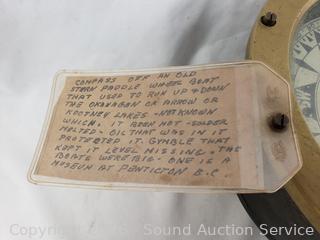 COMPASS OFF AN OLD
STERN PADDLE WHEEL BOAT
THAT USED TO RUN UP & DOWN
THE OKANAGAN OR ARROW OR
KOOTNEY LAKES - NOT KNOWN
WHICH. IT BEEN HOT - SOLDER
MELTED - OIL THAT WAS IN IT
PROTECTED IT. GYMBLE THAT
KEPT IT LEVEL MISSING. THE
BOATS WERE BIG - ONE IS A
MUSEUM AT PENTICTON B.C
Sound Auction Service